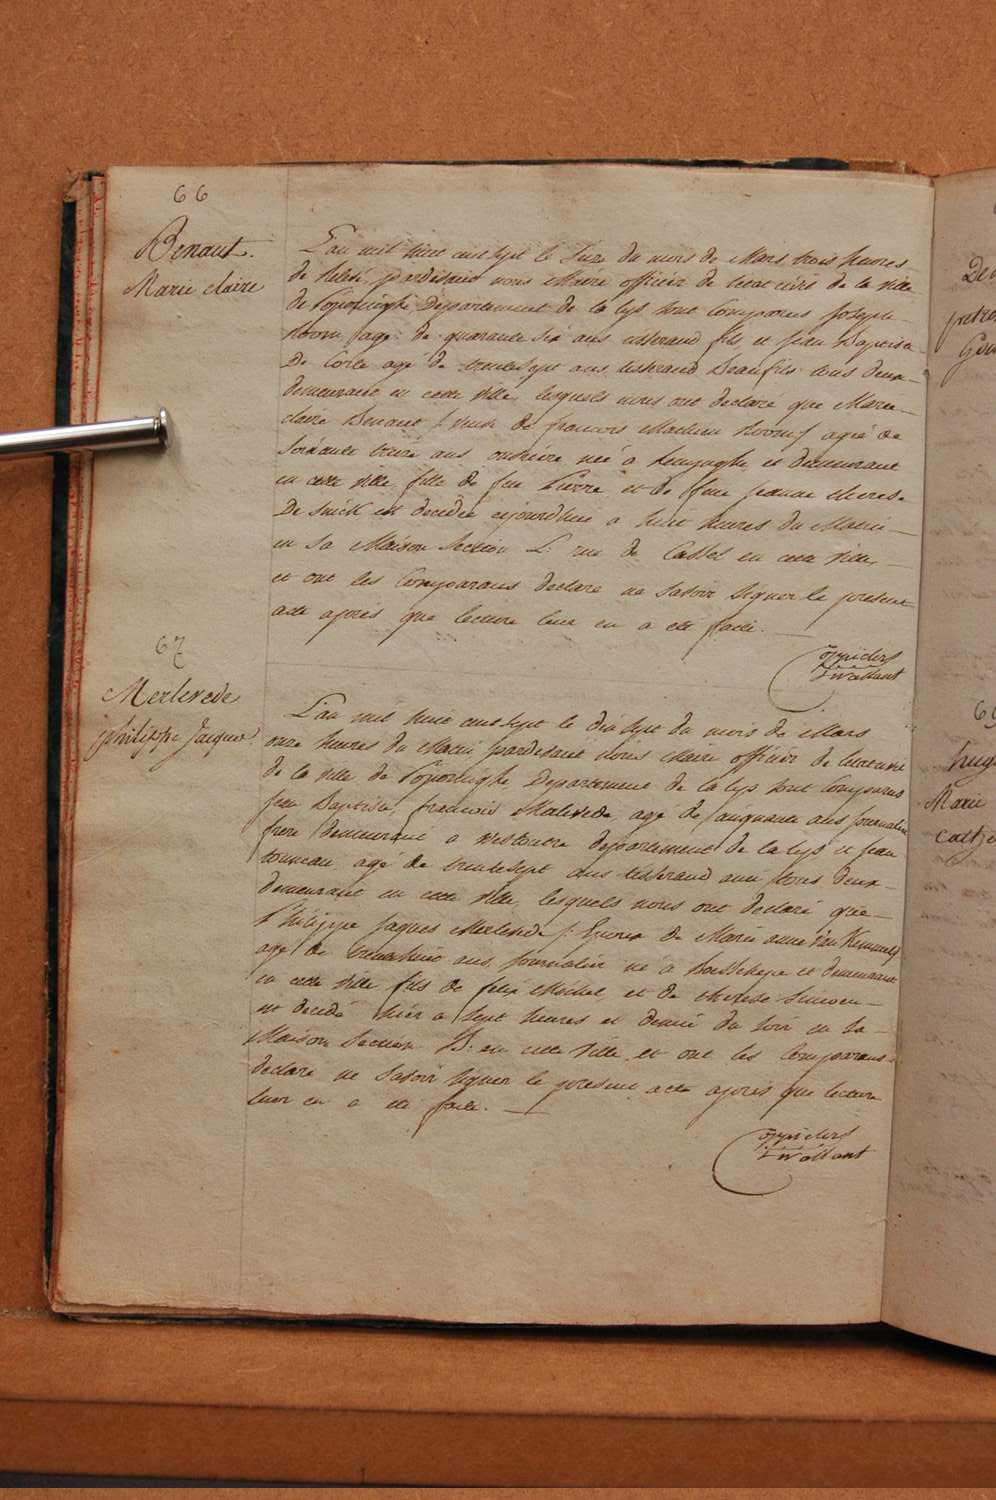 66
Benaut.
Marie claire
L'an mil huit cent sept le Seize du mois de Mars trois heures
de Relevé, pardevant nous Maire officier de l'état civil de la ville
de Poperinghe Département de la Lys sont Comparus Joseph
agé de quarante six ans tisserand fils et Jean Baptiste
De Corte agé de trentesept ans tisserand Beaufils tous deux
demeurant en cette ville, lesquels nous ont declaré que Marie
claire Benaut veuve de francois Mathieu agée de
Soixante treize ans ouvriere née a et demeurant
en cette ville fille de feu Pierre et de feue Jeanne therese
De est decedée aujourdhui a huit heures du Matin
en sa Maison Section L: rue de Cassel en cette ville,
et ont les Comparans declaré ne Savoir Signer le present
acte après que lecture leur en a été faite.
67
Merlevede
philippe Jacques
L'an mil huit cent sept le dix Sept du mois de Mars
onze heures du Matin pardevant Nous Maire officier de l'état civil
de la ville de Poperinghe Departement de la lys sont Comparus
Jean Baptiste, francois Merlevede, agé de cinquante ans journalier
frere demeurant a westoutre departement de la lys et Jean
agé de trentesept ans tisserand ami tous deux
demeurant en cette ville, lesquels nous ont declaré que
Philippe Jaques Merlevede Epoux de Marie anne
agé de trentehuit ans journalier né a et demeurant
en cette ville fils de felix Michel et de therese Simoen
est decedé hier a Sept heures et demie du soir en sa
Maison Section B: en cette Ville et ont les Comparans
declaré ne Savoir Signer le present acte après que lecture
leur en a été faite.